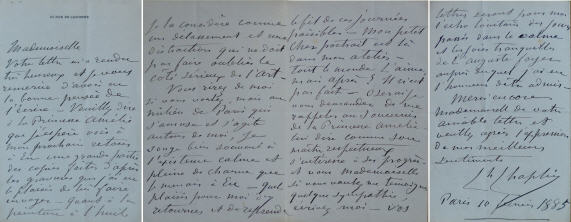 Mademoiselle
Votre lettre m'a rendu
très heureux et je vous
remercie d'avoir eu
la bonne pensée de
l'écrire. Veuillez dire
à la Princesse Amélie
que j'espère voir à
mon prochain retour
à Eu une grande partie
des copies faites d'après
des gravures que j'ai eu
le plaisir de lui faire
envoyer. Quant à la
peinture à l'huile
Je la considère comme
un délassement et une
distraction qui ne doit
pas faire oublier le
côté sérieux de l'Art.
Vous rirez de moi
si vous voulez, mais au
milieu de Paris qui
s'amuse et s'agite
autour de moi je
songe bien souvent à
l'existence calme et
pleine de charme que
je menais à Eu — quel
plaisir pour moi d'y
retourner et de reprendre
le fil de ces journées
paisibles — Mon petit
cher portrait est là
dans mon atelier —
tout le monde l'aime
moi après! Il n'est
pas fait — Oserai je
vous demander de me
rappeler au souvenir
de la Princesse Amélie
lui dire comme son
maître respectueux
s'intéresse à ses progrès
et vous mademoiselle
si vous voulez me témoigner
quelque sympathie,
écrivez moi — vos
lettres seront pour moi
l'écho lointain des jours
passés dans le calme
et les joies tranquilles
de l'auguste foyer
auprès duquel j'ai eu
l'honneur d'être admis.
Merci encore
mademoiselle de votre
aimable lettre et
veuillez agréer l'expression
de mes meilleurs
sentiments
Ch Chaplin
Paris 10 1885